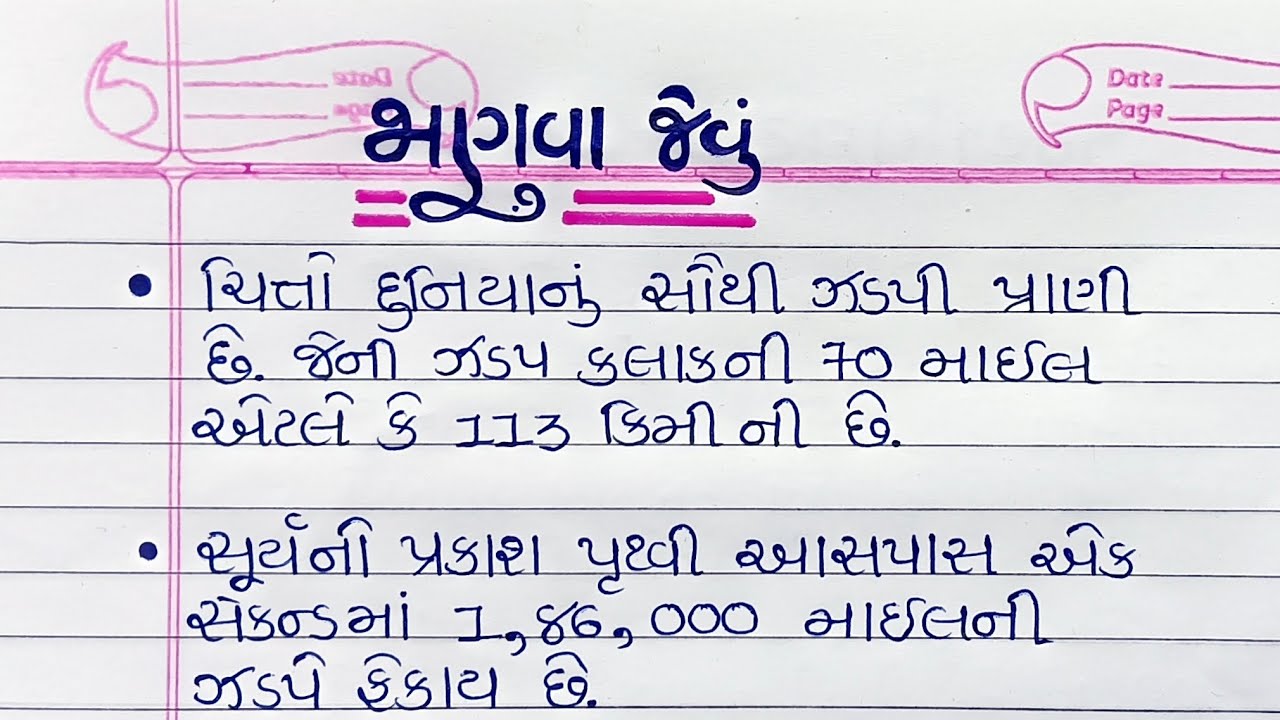 Date
Page
Date
Page
ભાગવા જેવું
• ચિત્તો દુનિયાનું સૌથી ઝડપી પ્રાણી
છે. જેની ઝડપ કલાકની 70 માઈલ
એટલે કે 113 કિમી ની છે.
• સૂર્યની પ્રકાશ પૃથ્વી આસપાસ એક
સેકન્ડમાં 1,૪6,000 માઈલની
ઝડપે ફેંકાય છે.